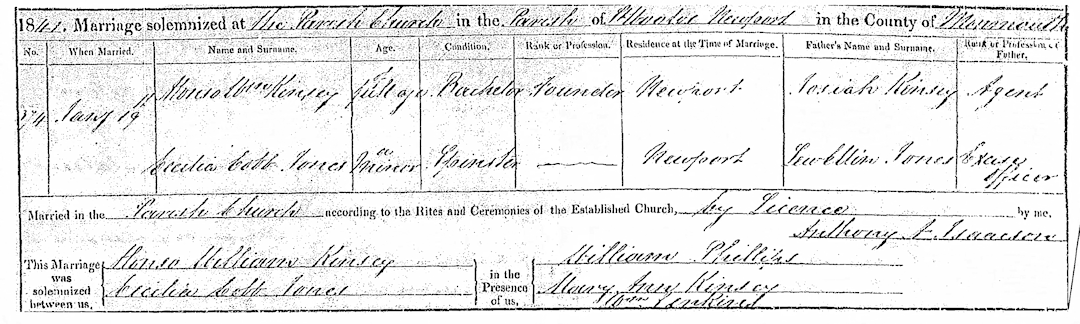 1841. Marriage solemnized at the Parish Church in the Parish of St Woolos Newport in the County of Monmouth
No. When Married. Name and Surname. Age. Condition. Rank or Profession. Residence at the Time of Marriage. Father's Name and Surname. Rank or Profession of Father.
74 Jany 19th Alonso Wm Kinsey full age Bachelor Founder Newport Josiah Kinsey Agent
Cecilia Cobb Jones a minor Spinster — Newport Lewellin Jones Excise officer
Married in the Parish Church according to the Rites and Ceremonies of the Established Church, by Licence by me,
Anthony A. Isaacson
This Marriage was solemnized between us, Alonso William Kinsey
Cecilia Cobb Jones
in the Presence of us, William Phillips
Mary Kinsey
Wm Jenkins